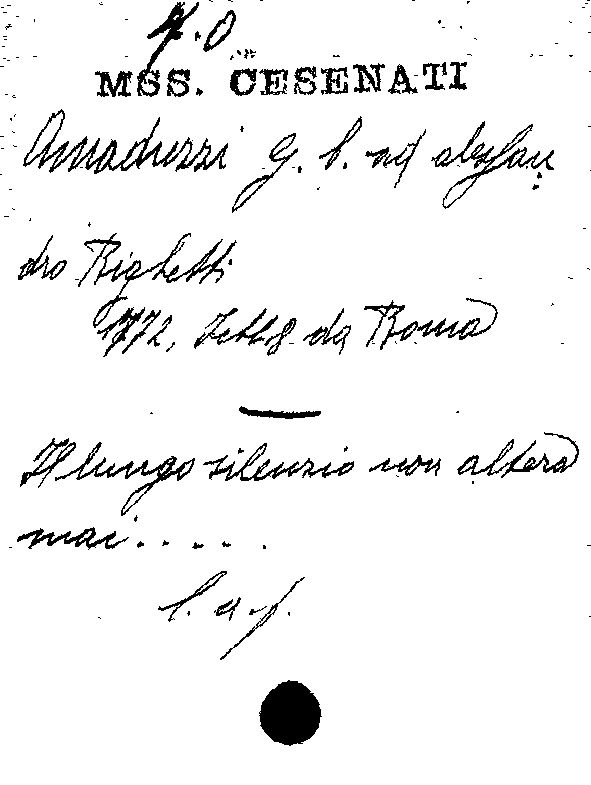 MSS. CESENATI
Amaduzzi G. C. ad Alessan
dro Righetti
1772, Sett. 8 da Roma
Il lungo silenzio non altera
mai . . . . .
l. a f.